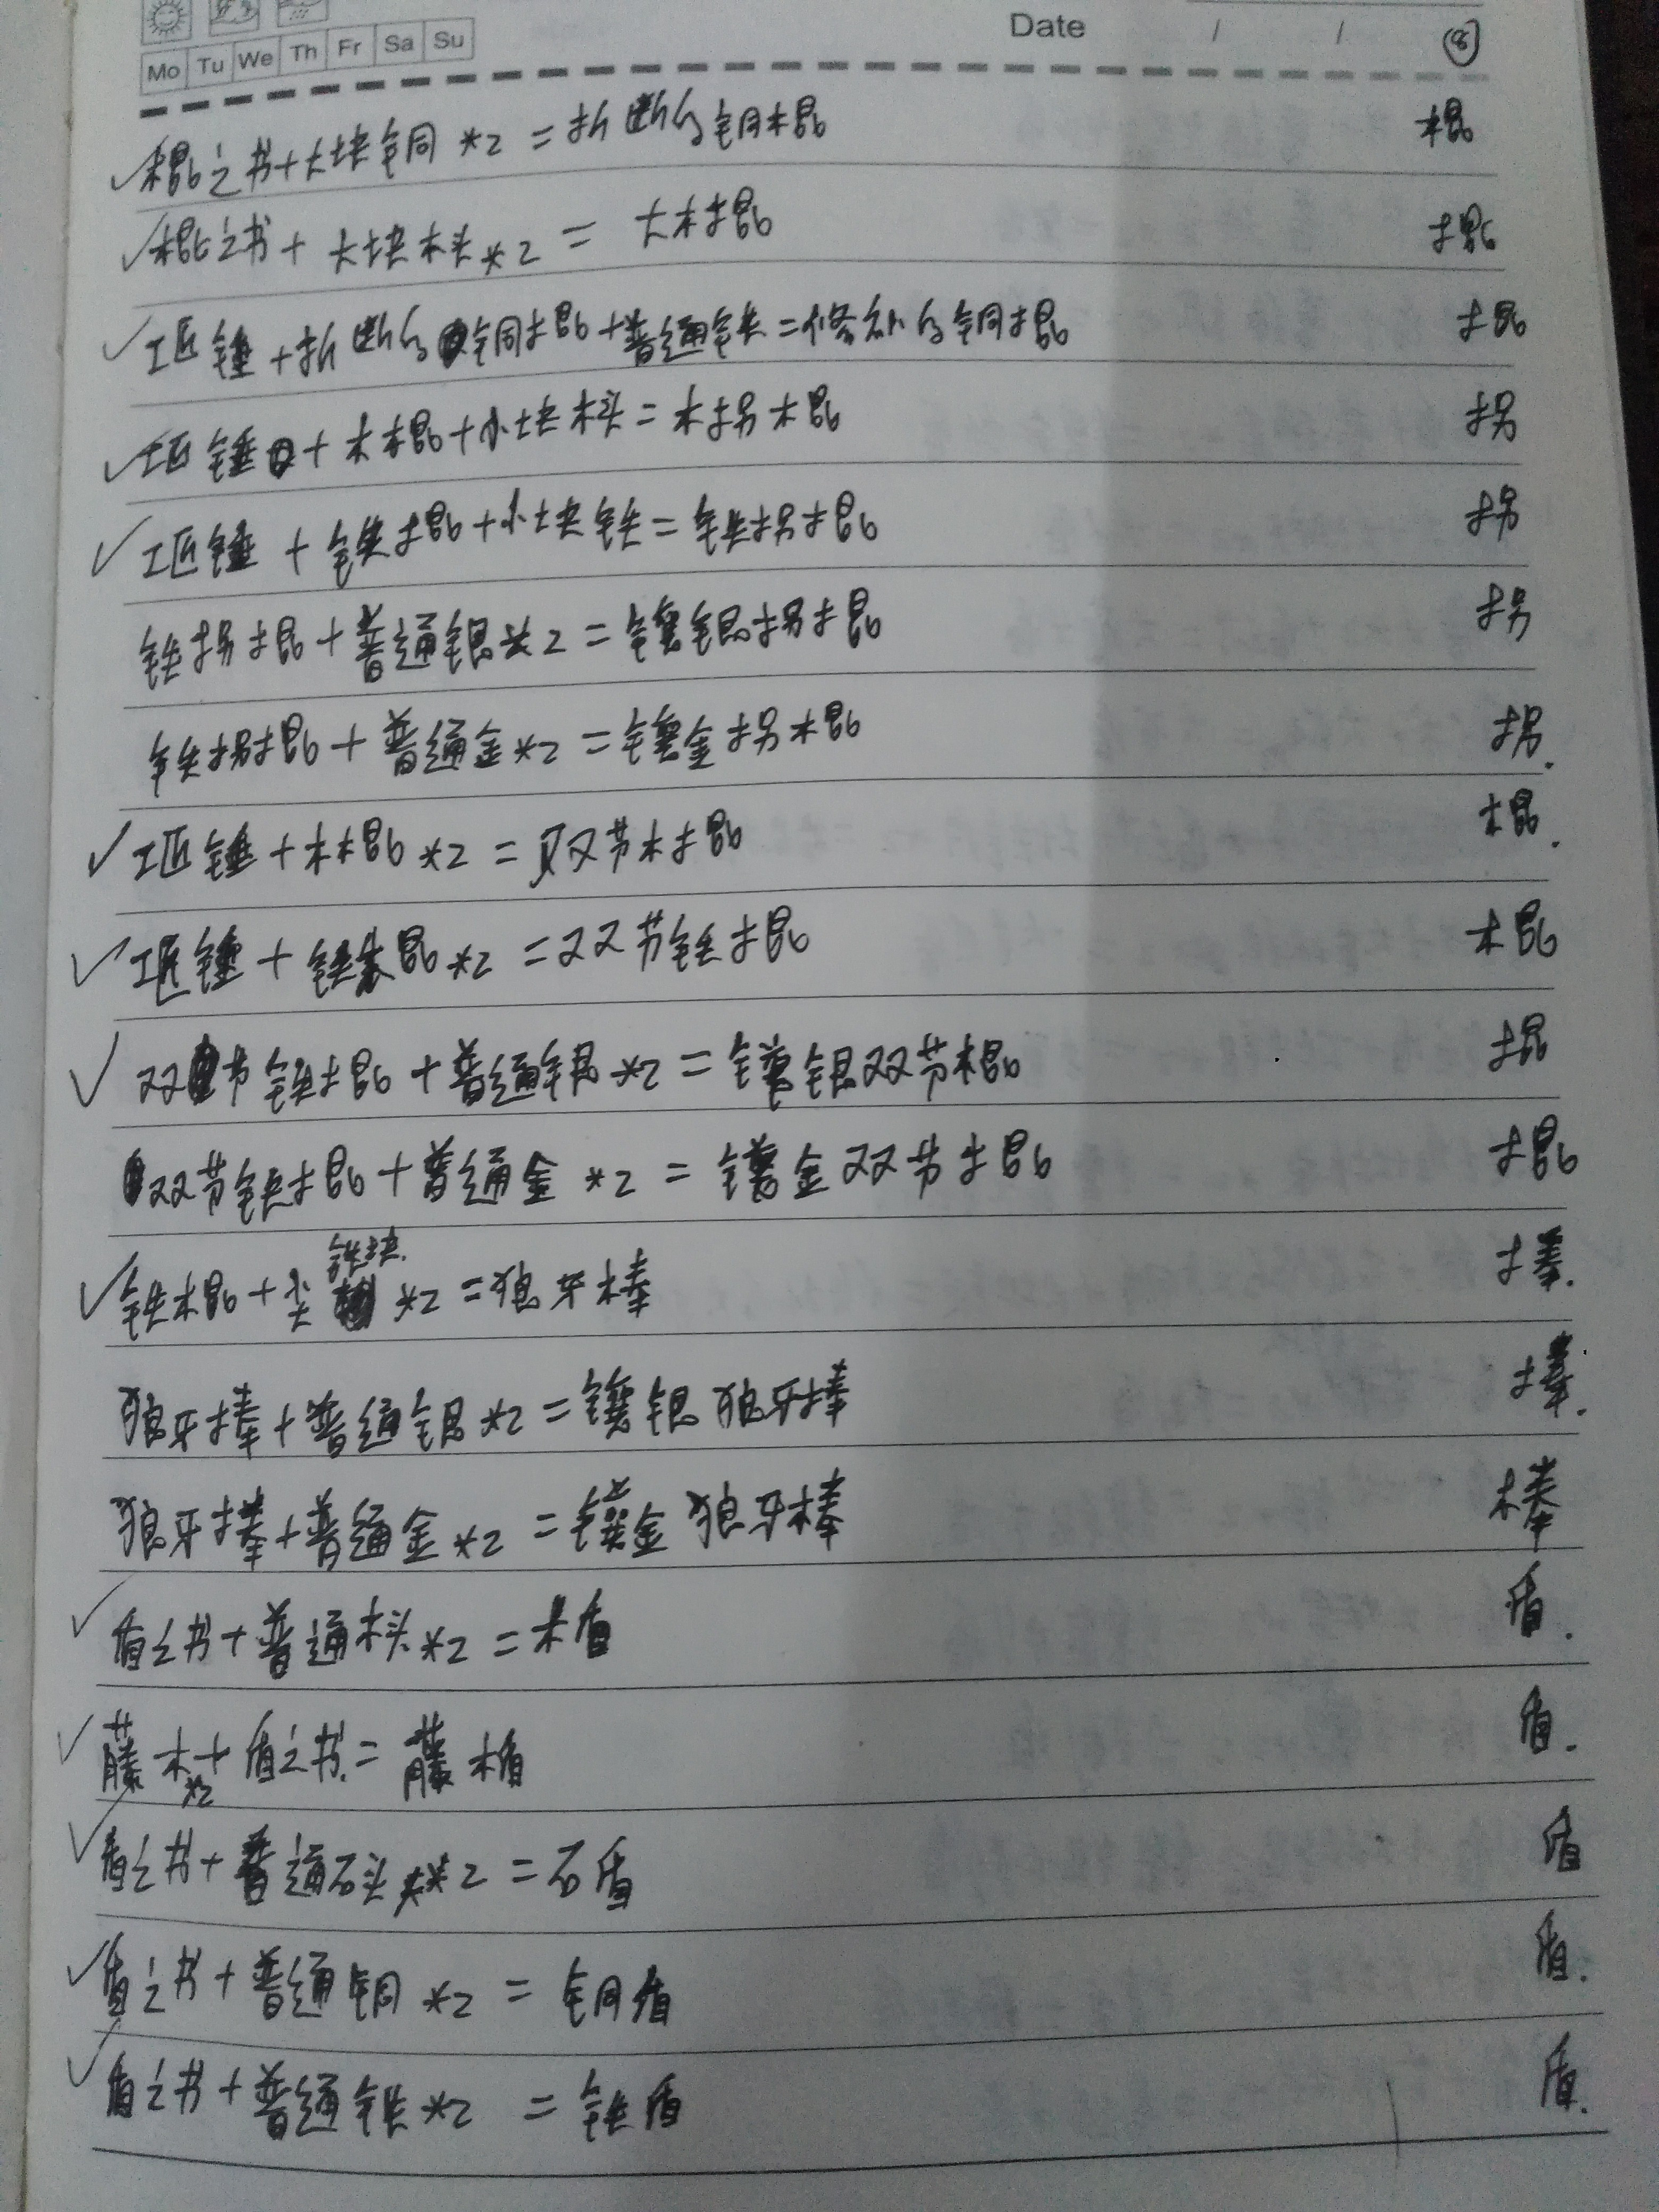 Mo Tu We Th Fr Sa Su
Date / / ⑧
✓棍之书+大块铜*2=折断的铜棍 棍
✓棍之书+大块木头*2=大木棍 棍
✓工匠锤+折断的铜棍+普通铁=修补的铜棍 棍
✓工匠锤+木棍+小块木头=木拐棍 拐
✓工匠锤+铁棍+小块铁=铁拐棍 拐
铁拐棍+普通银*2=镶银拐棍 拐
铁拐棍+普通金*2=镶金拐棍 拐.
✓工匠锤+木棍*2=双节木棍 棍.
✓工匠锤+铁棍*2=双节铁棍 棍
✓双节铁棍+普通银*2=镶银双节棍 棍
双节铁棍+普通金*2=镶金双节棍 棍
✓铁棍+尖铁块*2=狼牙棒 棒.
狼牙棒+普通银*2=镶银狼牙棒 棒.
狼牙棒+普通金*2=镶金狼牙棒 棒
✓盾之书+普通木头*2=木盾 盾.
✓藤木*2+盾之书=藤木盾 盾.
✓盾之书+普通石头*2=石盾 盾
✓盾之书+普通铜*2=铜盾 盾.
✓盾之书+普通铁*2=铁盾 盾.